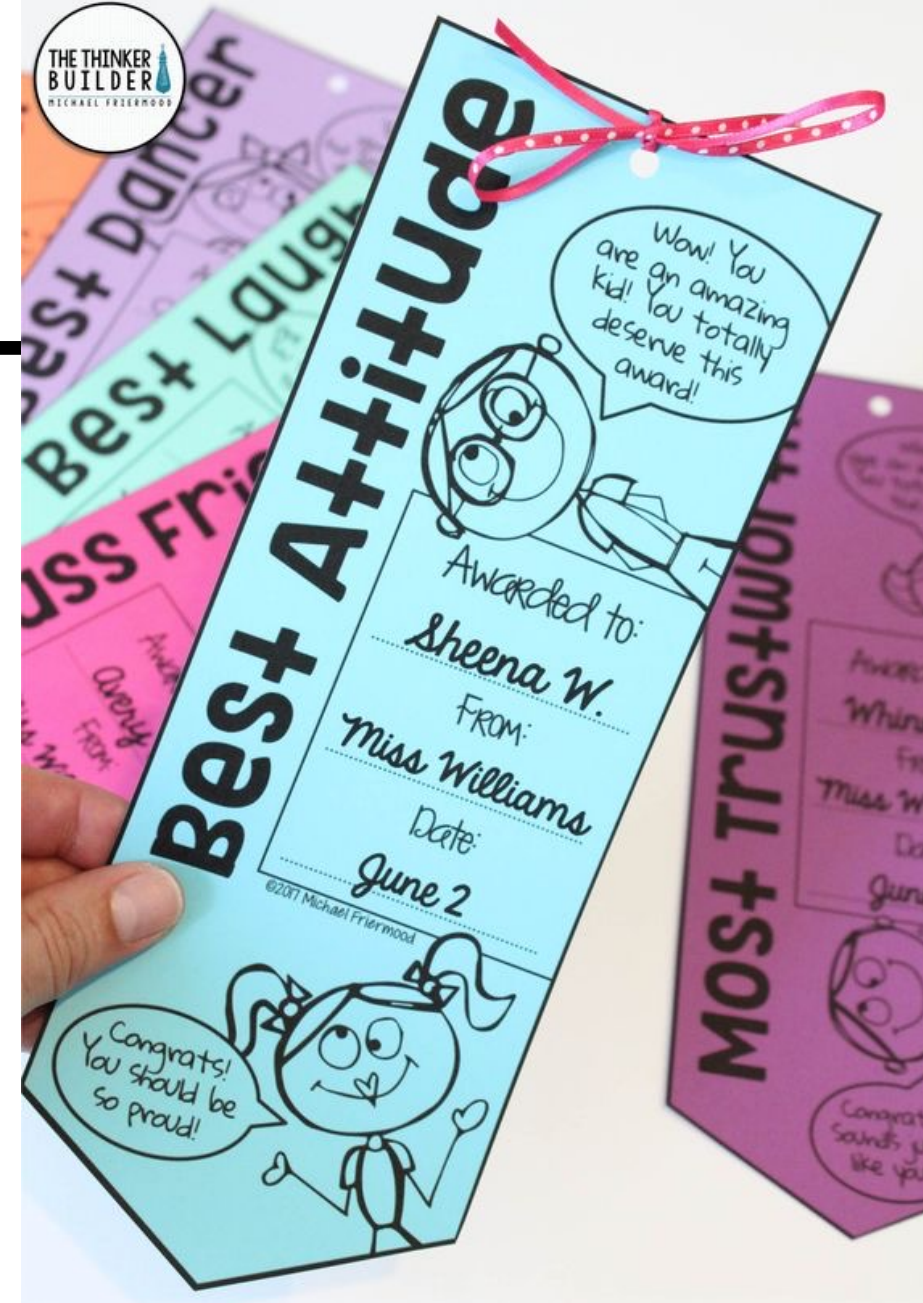 THE THINKER
BUILDER
MICHAEL FRIERMOOD
Best Dancer
Best Laugh
Avery
From:
Best Attitude
Wow! You
are an amazing
kid! You totally
deserve this
award!
Awarded to:
Sheena W.
From:
Miss Williams
Date:
June 2
©2017 Michael Friermood
Congrats!
You should be
so proud!
Most
Miss